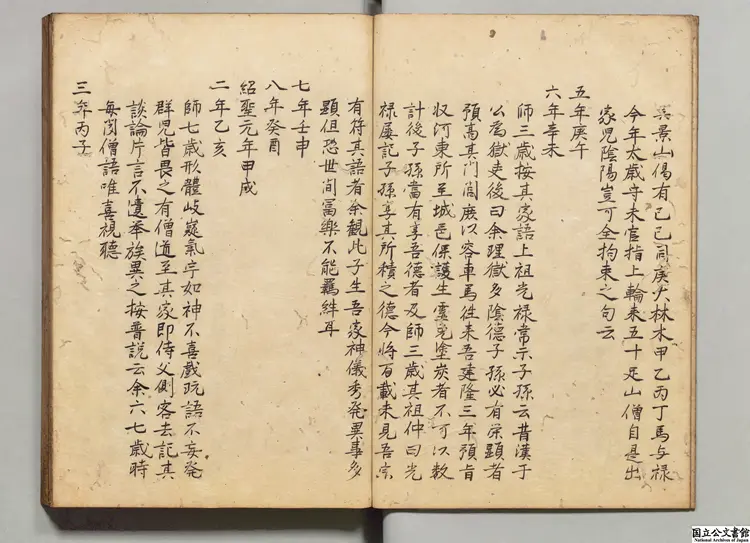 吴景山偈有己巳同庚大林木甲乙丙丁馬与禄
今年太歳守未宦指上輪来五十足山僧自是出
家児陰陽豈可全拘束之句云
五年庚午
六年辛未
師三歳按其家語上祖光禄常示子孫云昔漢于
公為獄吏後曰余理獄多陰德子孫必有栄顕者
預高其門閭庶以容車馬徃来吾建隆三年預肯
収河東所至城邑保護生霊免塗炭者不可以数
計後子孫當有享吾德者及師三歳其祖仲曰光
禄屢記子孫享其所積之德今将百載未見吾宗
有符其語者余觀此子生吾家神儀秀発異事多
顕但恐世间冨樂不能羈絆耳
七年壬申
八年癸酉
紹聖元年甲戌
二年乙亥
師七歳形體岐嶷氣宇如神不喜戯玩語不妄発
群児皆畏之有僧道至其家即侍父側客去記其
談論片言不遺举族異之按普説云余六七歳時
每闻僧語唯喜視聴
三年丙子
国立公文書館
National Archives of Japan